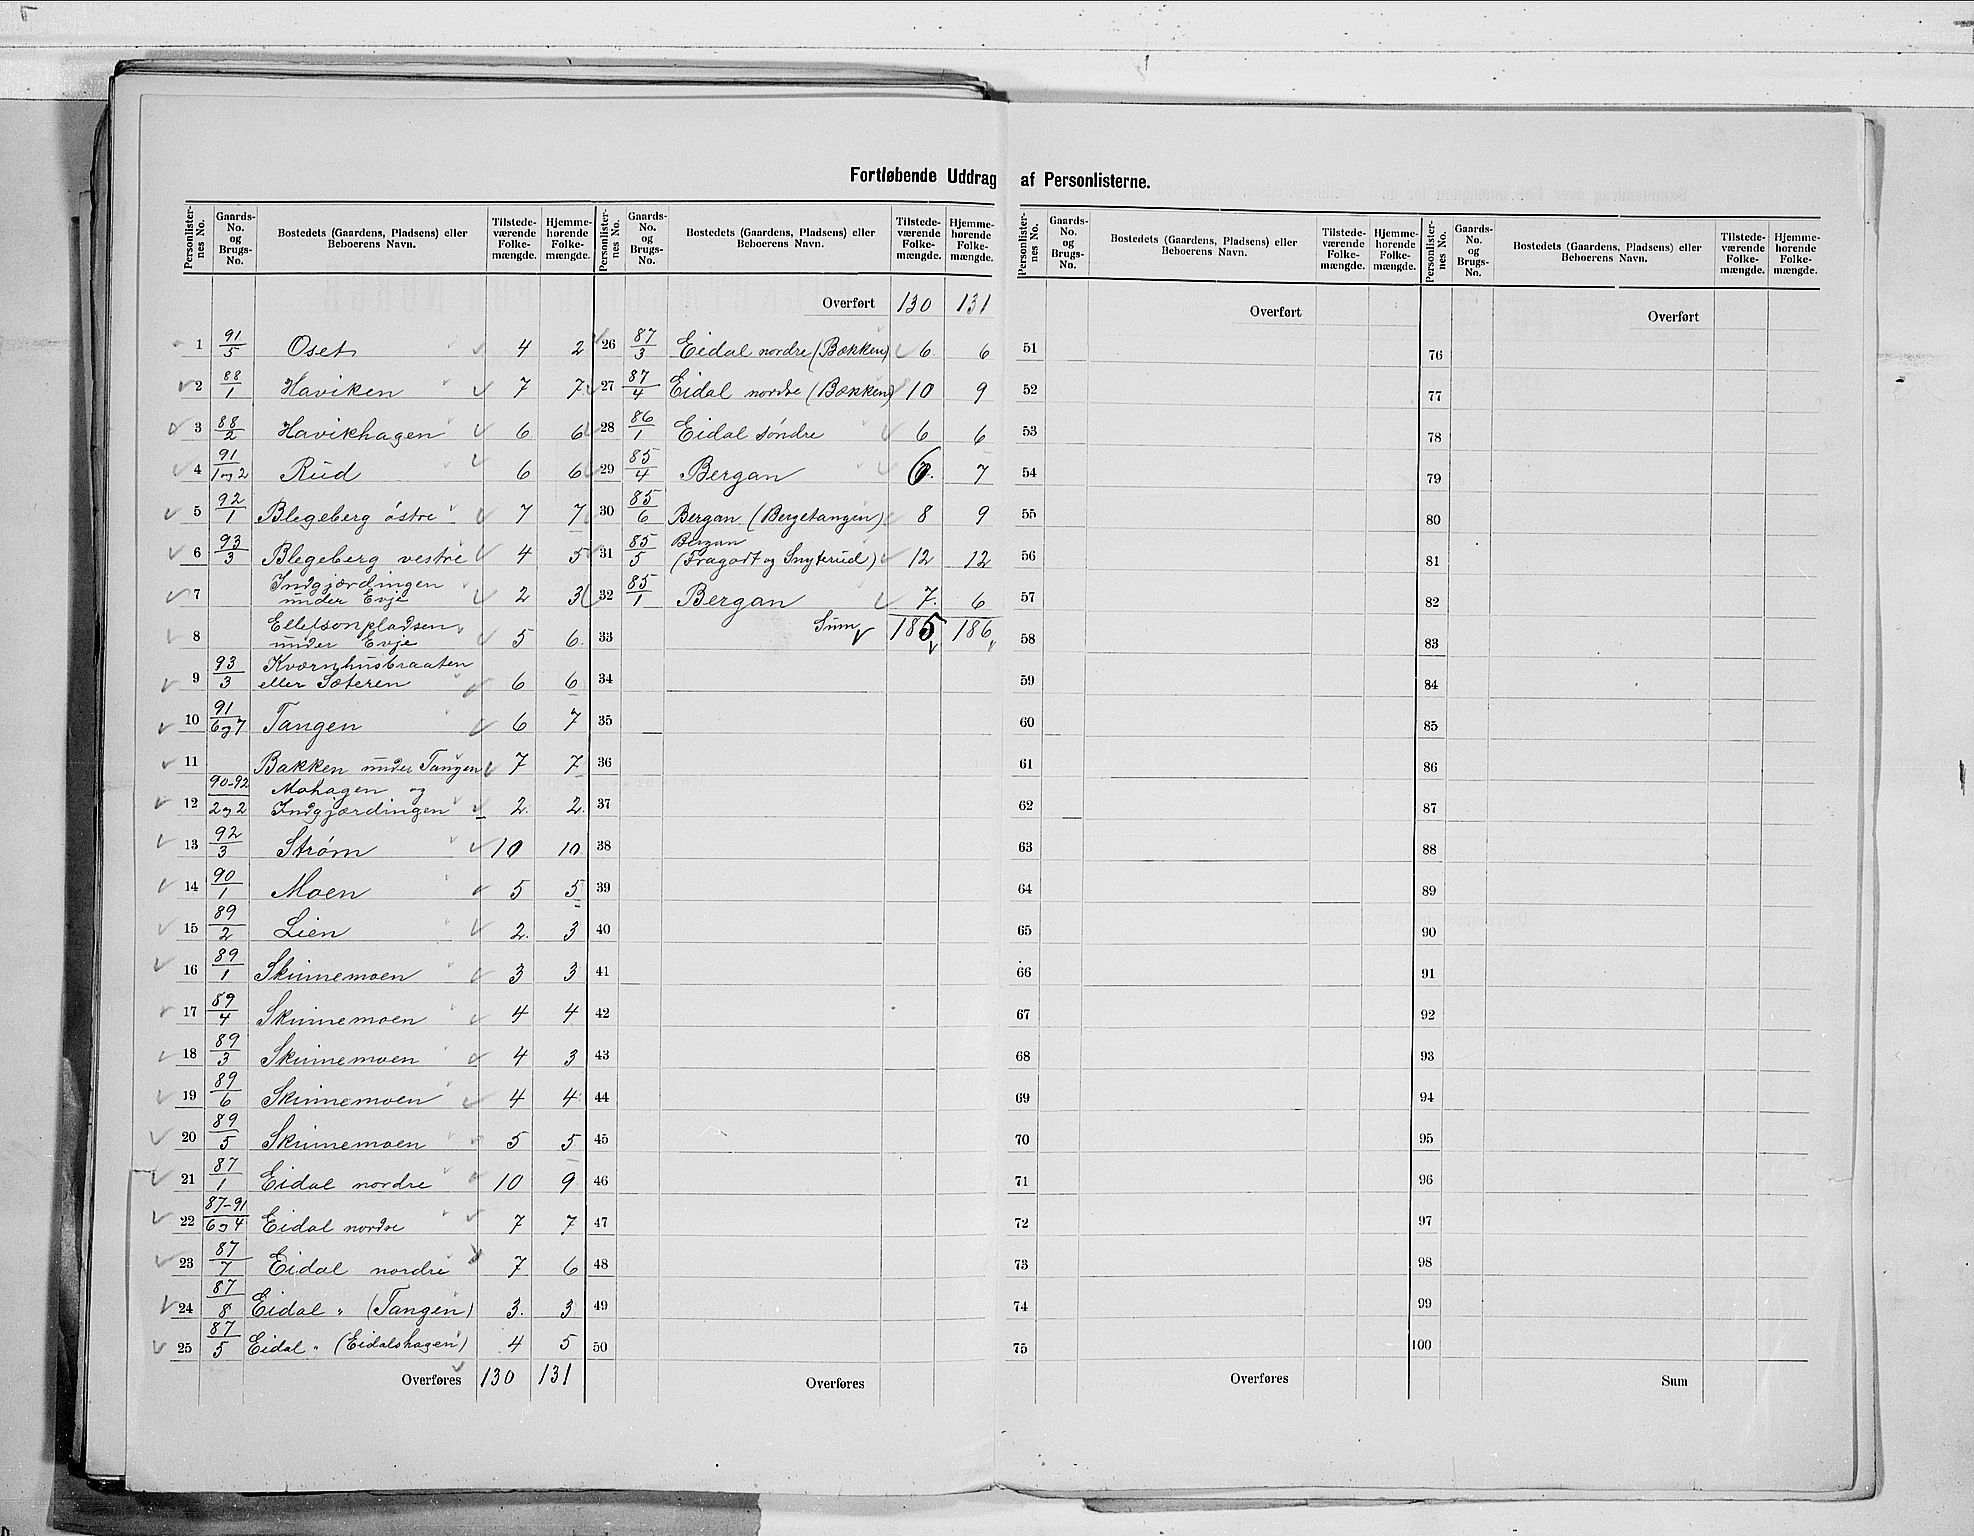 Fortløbende Uddrag af Personlisterne.
Personlister-nes No. | Gaards-No. og Brugs-No. | Bostedets (Gaardens, Pladsens) eller Beboerens Navn. | Tilstede-værende Folke-mængde. | Hjemme-hørende Folke-mængde.
1 | 91/5 | Oset | 4 | 2
2 | 88/1 | Haviken | 7 | 7
3 | 88/2 | Havikhagen | 6 | 6
4 | 91/1 og 2 | Rud | 6 | 6
5 | 92/1 | Blegeberg östre | 7 | 7
6 | 93/3 | Blegeberg vestre | 4 | 5
7 | Indgjærdingen under Evje | 2 | 3
8 | Ellefsonpladsen under Evje | 5 | 6
9 | 93/3 | Kværnhusbraaten eller Sæteren | 6 | 6
10 | 91/6 og 7 | Tangen | 6 | 7
11 | Bakken under Tangen | 7 | 7
12 | 90-92/2 og 2 | Mohagen og Indgjærdingen | 2 | 2
13 | 92/3 | Strøm | 10 | 10
14 | 90/1 | Moen | 5 | 5
15 | 89/2 | Lien | 2 | 3
16 | 89/1 | Skinnemoen | 3 | 3
17 | 89/4 | Skinnemoen | 4 | 4
18 | 89/3 | Skinnemoen | 4 | 3
19 | 89/6 | Skinnemoen | 4 | 4
20 | 89/5 | Skinnemoen | 5 | 5
21 | 87/1 | Eidal nordre | 10 | 9
22 | 87-91/6 og 4 | Eidal nordre | 7 | 7
23 | 87/7 | Eidal nordre | 7 | 6
24 | 87/8 | Eidal " (Tangen) | 3 | 3
25 | 87/5 | Eidal " (Eidalshagen) | 4 | 5
Overføres | 130 | 131
Personlister-nes No. | Gaards-No. og Brugs-No. | Bostedets (Gaardens, Pladsens) eller Beboerens Navn. | Tilstede-værende Folke-mængde. | Hjemme-hørende Folke-mængde.
Overført | 130 | 131
26 | 87/3 | Eidal nordre (Bækken) | 6 | 6
27 | 87/4 | Eidal nordre (Bækken) | 10 | 9
28 | 86/1 | Eidal söndre | 6 | 6
29 | 85/4 | Bergan | 6 | 7
30 | 85/6 | Bergan (Bergetangen) | 8 | 9
31 | 85/5 | Bergan (Fragodt og Snyterud) | 12 | 12
32 | 85/1 | Bergan | 7 | 6
33 | Sum | 185 | 186
34
35
36
37
38
39
40
41
42
43
44
45
46
47
48
49
50
Overføres
Personlister-nes No. | Gaards-No. og Brugs-No. | Bostedets (Gaardens, Pladsens) eller Beboerens Navn. | Tilstede-værende Folke-mængde. | Hjemme-hørende Folke-mængde.
Overført
51
52
53
54
55
56
57
58
59
60
61
62
63
64
65
66
67
68
69
70
71
72
73
74
75
Overføres
Personlister-nes No. | Gaards-No. og Brugs-No. | Bostedets (Gaardens, Pladsens) eller Beboerens Navn. | Tilstede-værende Folke-mængde. | Hjemme-hørende Folke-mængde.
Overført
76
77
78
79
80
81
82
83
84
85
86
87
88
89
90
91
92
93
94
95
96
97
98
99
100
Sum